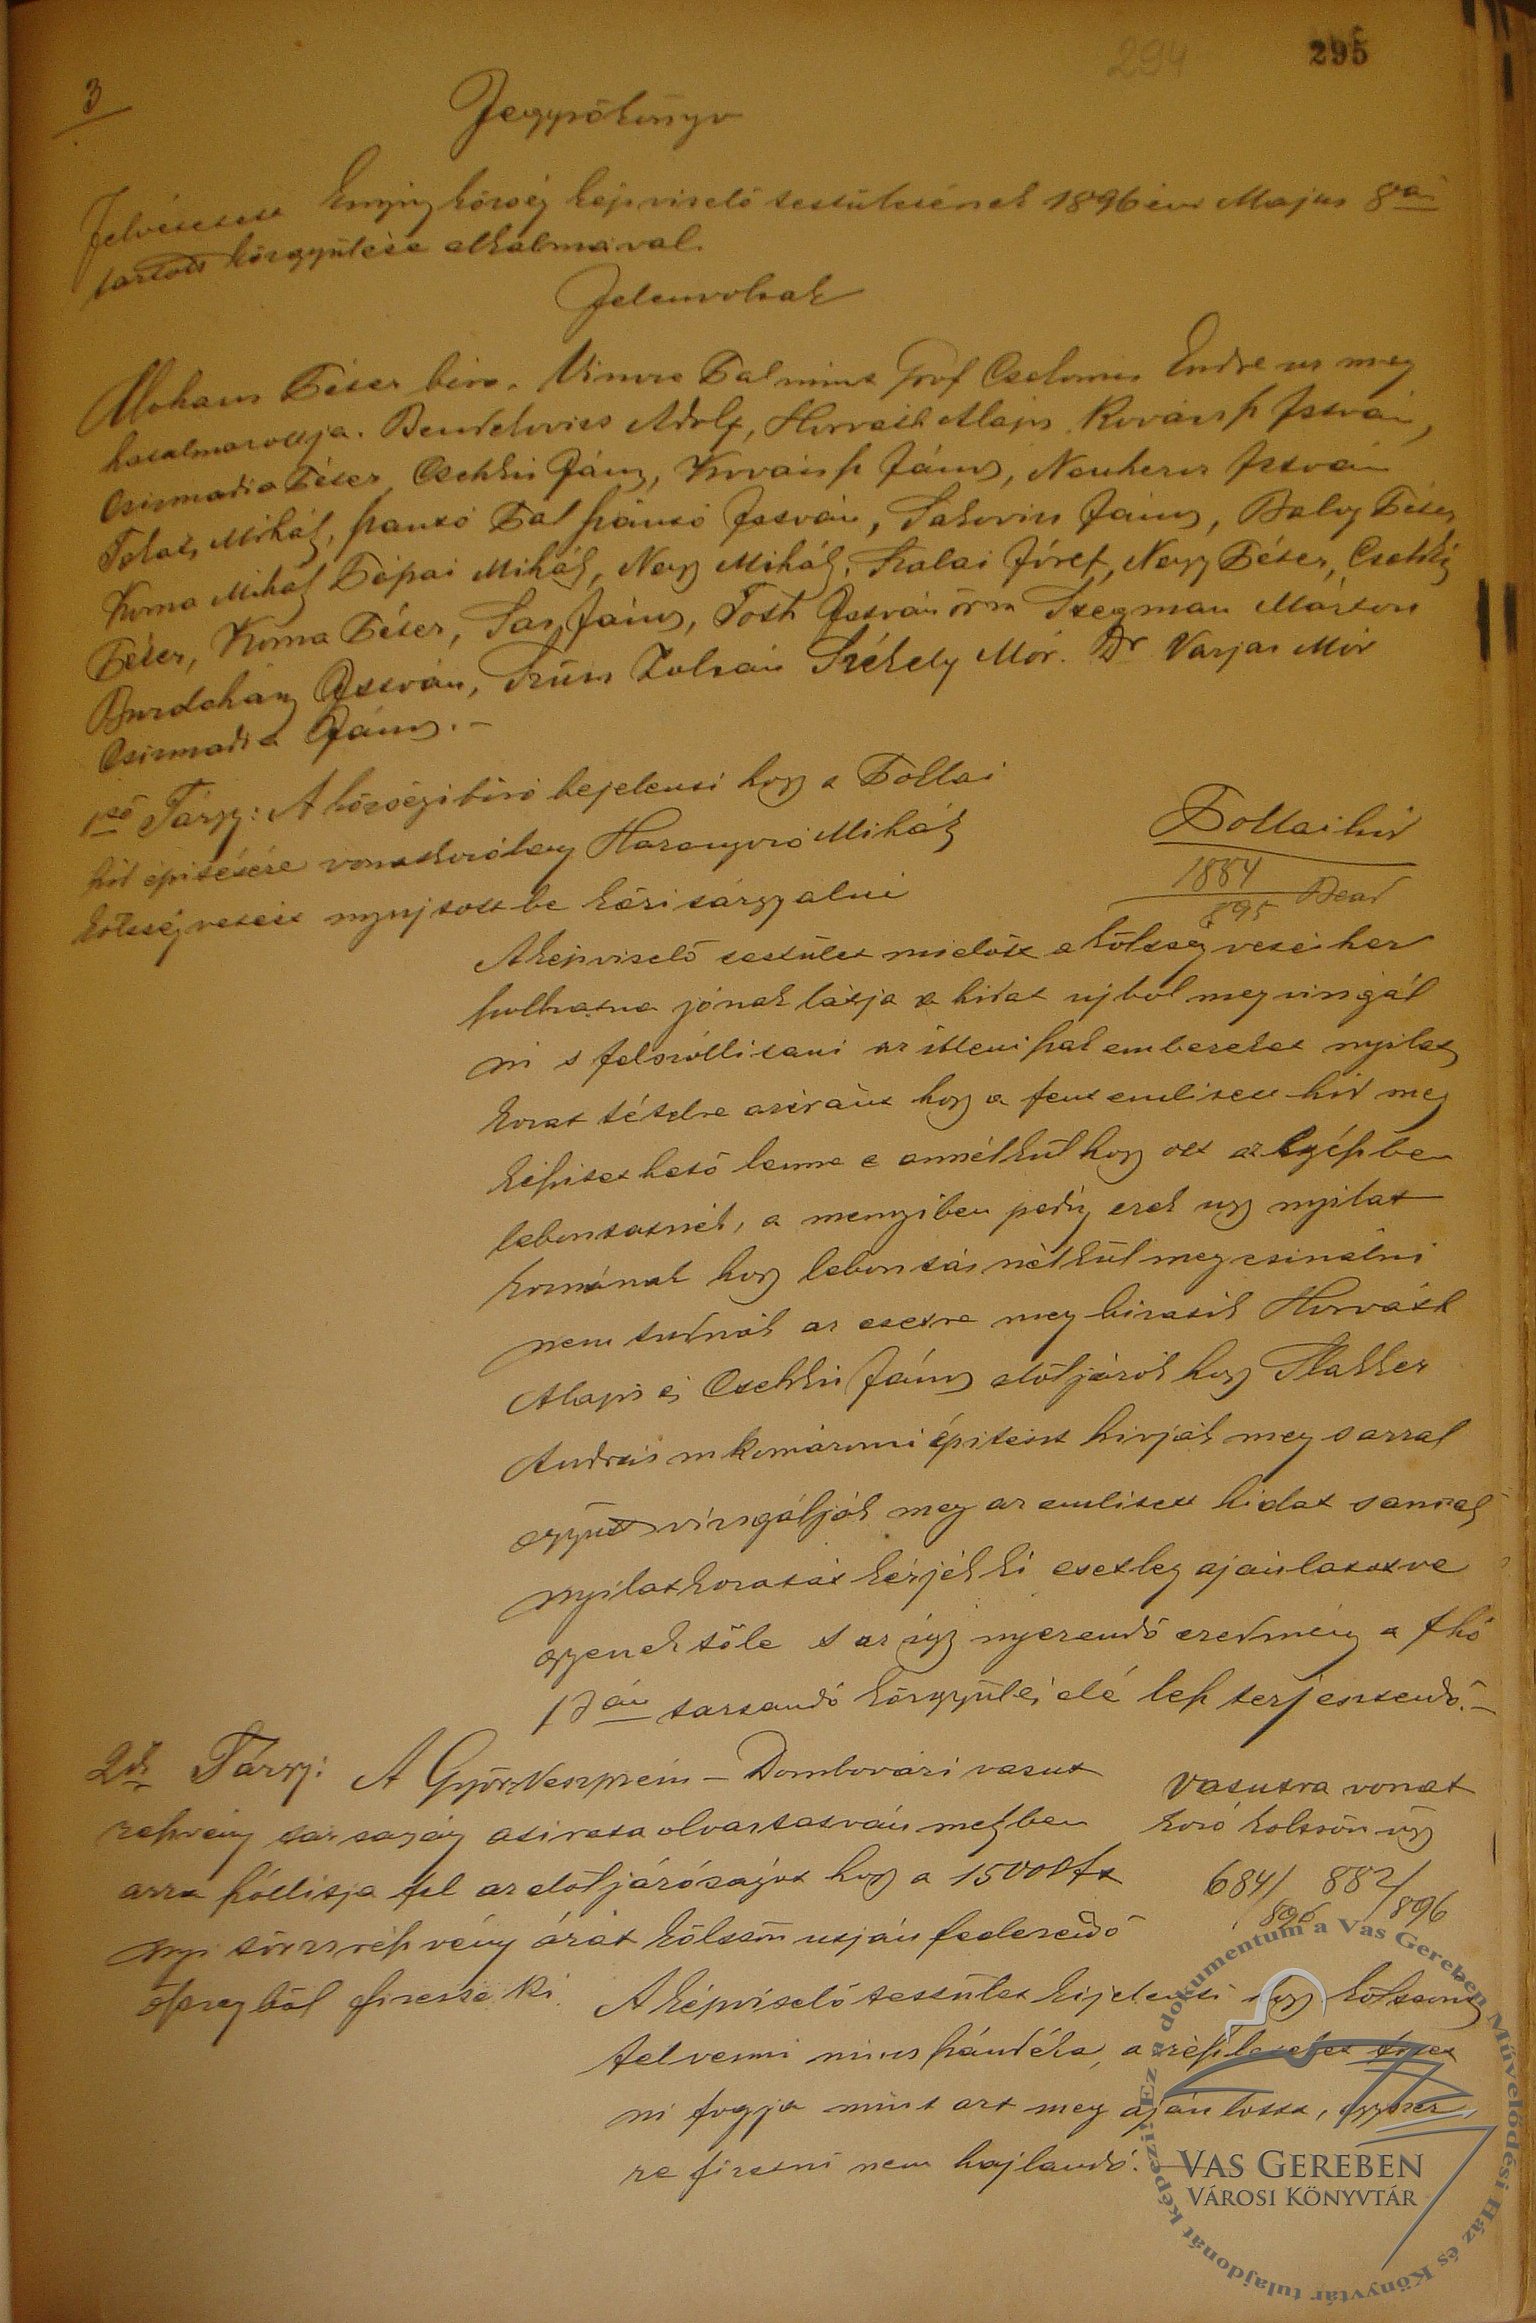 294
295
3
Jegyzőkönyv
Felvétetett Enying község képviselő testületének 1896 évi Majus 8án
tartott közgyűlése alkalmával.
Jelenvoltak
Mohaus Péter biró. Vincze Pál mint Gróf Csekonics Endre ur meg
hatalmazottja. Bendelovics Adolf, Horvath Alajos Kovács István,
Csizmadia Péter, Csekkei János, Kovács János, Neuherz István
Mihály, Szántó Pál Szántó István, Takovics János, Péter
Koma Mihály Pápai Mihály, Nagy Mihály, Szalai József, Nagy Péter, Csekkei
Péter, Koma Péter, Sas János, Toth István örm Stegman Márton
István, Szűts Zoltán Székely Mór. Dr Varjas Mór
Csizmadia János. –
1ső Tárgy: A községi biró bejelenti hogy a
hid épitésére vonatkozólag Haranyozó Mihály
költségvetést nyujtott be kéri tárgyalni
hid
1884
895
A képviselő testület mielőtt a költség vetéshez
szolhatna jónak látja a hidat ujbol megvizsgál
ni s felszóllitani az itteni szakembereket nyilat
kozat tételre aziránt hogy a fent emlitett hid meg
épithető lenne e annélkül hogy ott az egészben
lebontatnék, a menyiben pedig ezek ugy nyilat
koznának hogy lebontás nélkül megcsinálni
nem tudnák az esetre meg bizatik Horváth
Alajos és Csekkei János elöljárók hogy
András m komáromi épitészt hivják meg s azzal
együtt vizsgálják meg az emlitett hidat s annak
nyilatkozatát kérjék ki esetleg ajánlatot ve
gyenek tőle s az igy nyerendő eredmény a f hó
17án tartandó közgyűlés elé lesz terjesztendő. –
2ik Tárgy: A Győr Veszprém – Dombovári vasut
részvény társaság átirata olvastatván melyben
arra szóllitja fel az elöljáróságot hogy a 15000 frt
nyi törzsrészvény árát kölcsön utján fedezendő
öszegből fizesse ki
Vasutra vonat
kozó kölcsön ügy
684/896 882/896
A képviselő testület kijelenti hogy kölcsönt
felvenni nincs szándéka, a részleteket fizet
ni fogja mint azt meg ajánlotta, egyszer
re fizetni nem hajlandó. –
Ez a dokumentum a Vas Gereben Művelődési Ház és Könyvtár tulajdonát képezi.
VAS GEREBEN
VÁROSI KÖNYVTÁR